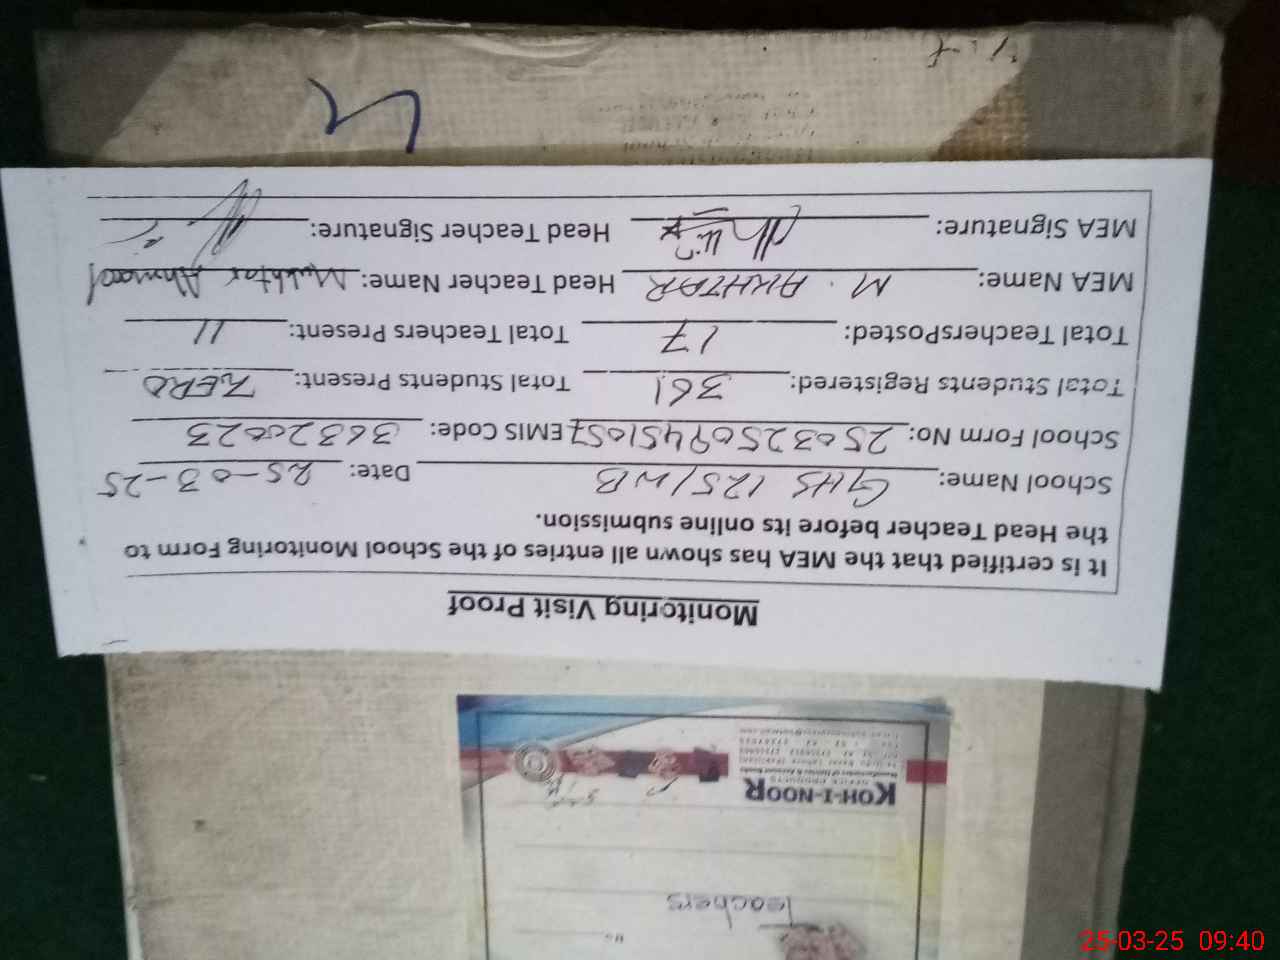 Monitoring Visit Proof
It is certified that the MEA has shown all entries of the School Monitoring Form to
the Head Teacher before its online submission.
School Name: GHS 125/WB Date: 25-03-25
School Form No: 25032509451057 EMIS Code: 36320023
Total Students Registered: 361 Total Students Present: ZERO
Total TeachersPosted: 17 Total Teachers Present: 11
MEA Name: M. AKHTAR Head Teacher Name: Mukhtar Ahmad
MEA Signature: Head Teacher Signature:
KOH-I-NOOR
OFFICE PRODUCTS
Teachers
25-03-25 09:40